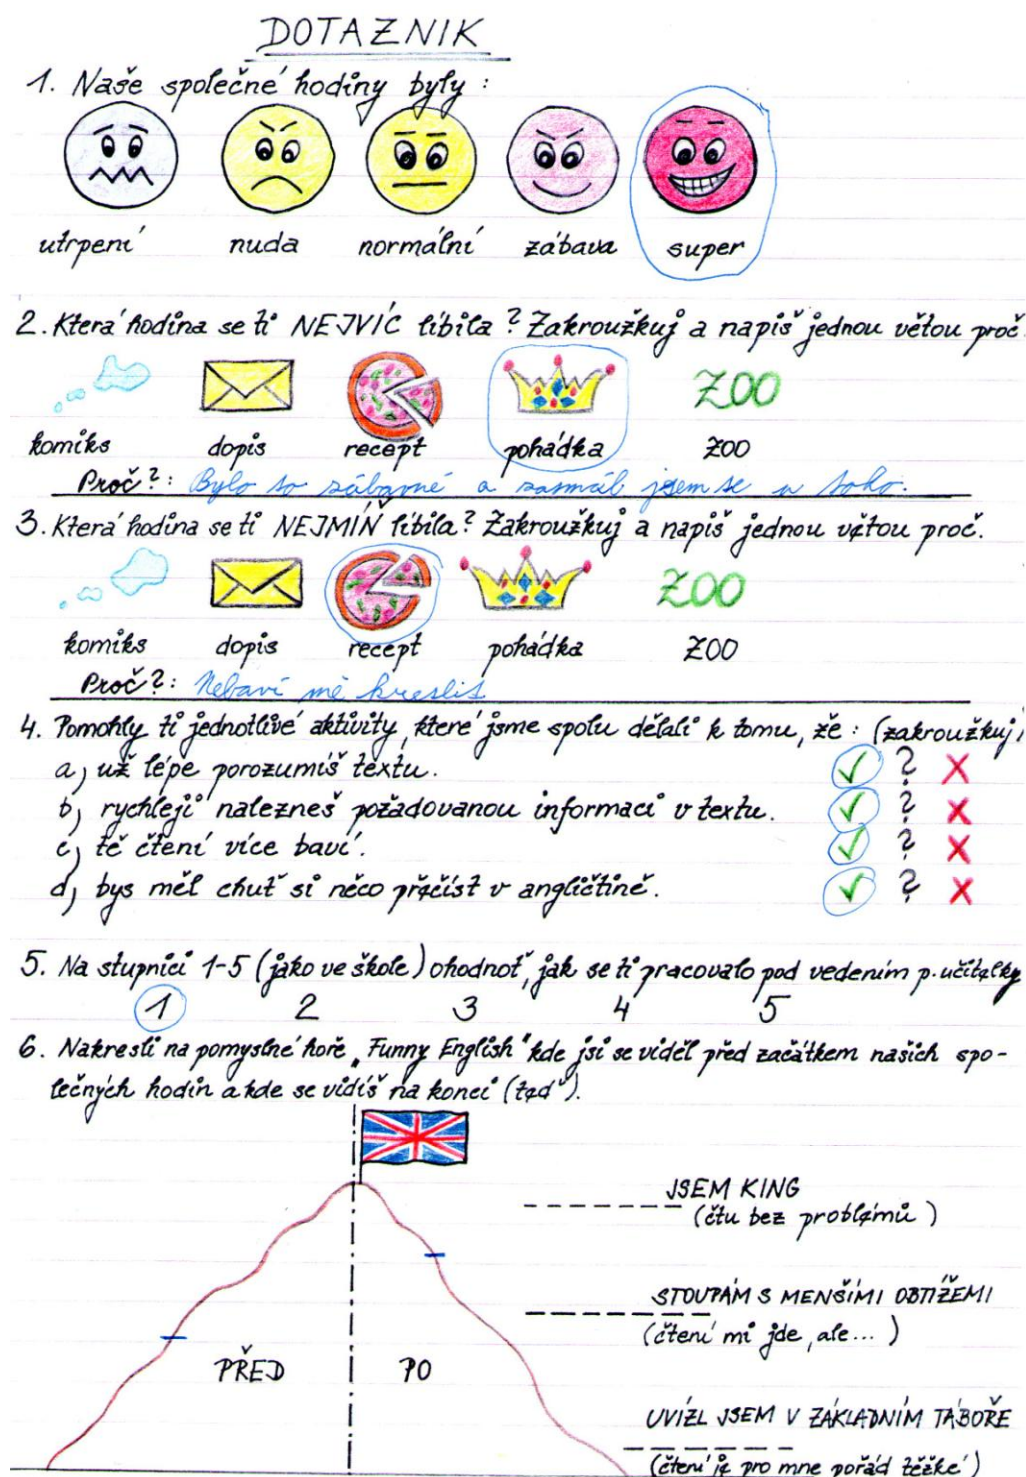 DOTAZNIK
1. Naše společné hodiny byly :
utrpení nuda normální zábava super
2. Která hodina se ti NEJVÍC líbila ? Zakroužkuj a napiš jednou větou proč.
ZOO
komiks dopis recept pohádka ZOO
Proč ? : Bylo to zábavné a zasmál jsem se u toho.
3. Která hodina se ti NEJMÍŇ líbila ? Zakroužkuj a napiš jednou větou proč.
ZOO
komiks dopis recept pohádka ZOO
Proč ? : Nebaví mě kreslit
4. Pomohly ti jednotlivé aktivity, které jsme spolu dělali k tomu, že : (zakroužkuj)
a) už lépe porozumíš textu. ✓ ? X
b) rychleji nalezneš požadovanou informaci v textu. ✓ ? X
c) tě čtení více baví. ✓ ? X
d) bys měl chuť si něco přečíst v angličtině. ✓ ? X
5. Na stupnici 1-5 (jako ve škole) ohodnoť, jak se ti pracovalo pod vedením p. učitelky
1 2 3 4 5
6. Nakresli na pomyslné hoře „Funny English" kde jsi se viděl před začátkem našich spo-
lečných hodin a kde se vidíš na konci (teď).
JSEM KING
(čtu bez problémů)
STOUPÁM S MENŠÍMI OBTÍŽEMI
(čtení mi jde, ale...)
PŘED PO
UVÍZL JSEM V ZÁKLADNÍM TÁBOŘE
(čtení je pro mne pořád těžké)